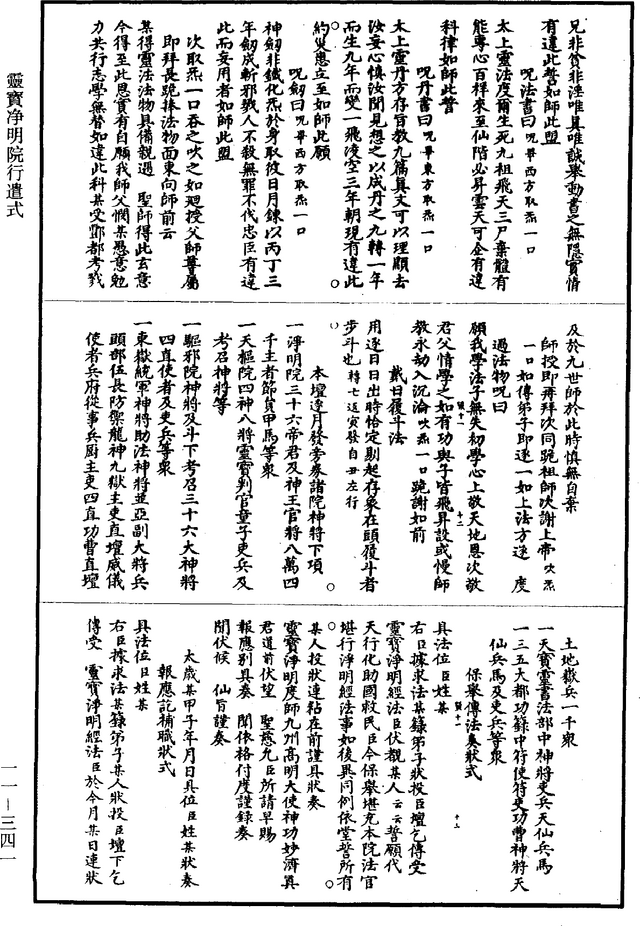 靈寶净明院行遣式
兄非貪非淫唯真唯誠舉動書之無隱實情
有違此誓如師此盟
呪法書曰呪畢西方取炁一口
太上靈法度爾生死九祖飛天三尸棄體有
能專心百祥來至仙階必昇雲天可企有違
科律如師此誓
呪丹書曰呪畢東方取炁一口
太上靈丹方存旨教九篇真文可以理順去
汝妄心慎汝聞見想之以成丹之九轉一年
而生九年而變一飛凌空三年朝現有違此
約災患立至如師此願
呪劒曰呪畢西方取炁一口
神劒非鐵化炁於身取彼日月鍊以丙丁三
年劒成斬邪戮人不殺無罪不伐忠臣有違
此而妄用者如師此盟
次取炁一口吞之吹之如廻授父師尊屬
即拜長跪捧法物面東向師前云
某得靈法法物具備親遇　聖師得此玄意
今得至此恩實有自願我師父憫某愚意勉
力共行志學無替如違此科某受酆都考戮
及於九世師於此時慎無自棄
師授即再拜次同跪祖師次謝上帝吹炁
一口如傳弟子即遂一如上法方遂　度
過法物呪曰
願我學法子無失初學心上敬天地恩次敬
君父情學之如有功與子皆飛昇設或慢師
教永劫入沉淪吹炁一口跪謝如前
戴日履斗法
用逐日日出時恰定剔起存象在頭履斗者
步斗也轉七返寅發自丑左行
本壇逐月發旁券諸院神將下項
一淨明院三十六帝君及神王官將八萬四
千主者節貟甲馬等衆
一天樞院四神八將靈寶判官童子吏兵及
考召神將等
一驅邪院神將及斗下考召三十六大神將
四直使者及吏兵等衆
一東嶽統軍神將助法神將並亞副大將兵
頭部伍長防禦龍神九獄主吏直壇威儀
使者兵府從事兵廚主吏四直功曹直壇
土地嶽兵一千衆
一天寶靈書法部中神將吏兵天仙兵馬
一三五大都功籙中符使符吏功曹神將天
仙兵馬及吏兵等衆
保舉傳法奏狀式
具法位臣姓某
右臣據求法某籙弟子狀投臣壇乞傳受
靈寶淨明經法臣伏覩某人云云誓願代
天行化助國救民臣今保舉堪充本院法官
堪行淨明經法事如後異同例依堂誓所有
某人投狀連粘在前謹具狀奏
靈寶淨明度師九州高明大使神功妙濟真
君道前伏望　聖慈允臣所請早賜
報應別具奏　聞依格付度謹錄奏
聞伏候　仙旨謹奏
太歲某甲子年月日具位臣姓某狀奏
報應訖補職狀式
具法位臣姓某
右臣據求法某籙弟子某人狀投臣壇下乞
傳受　靈寶淨明經法臣於今月某日連狀
一一－三四一